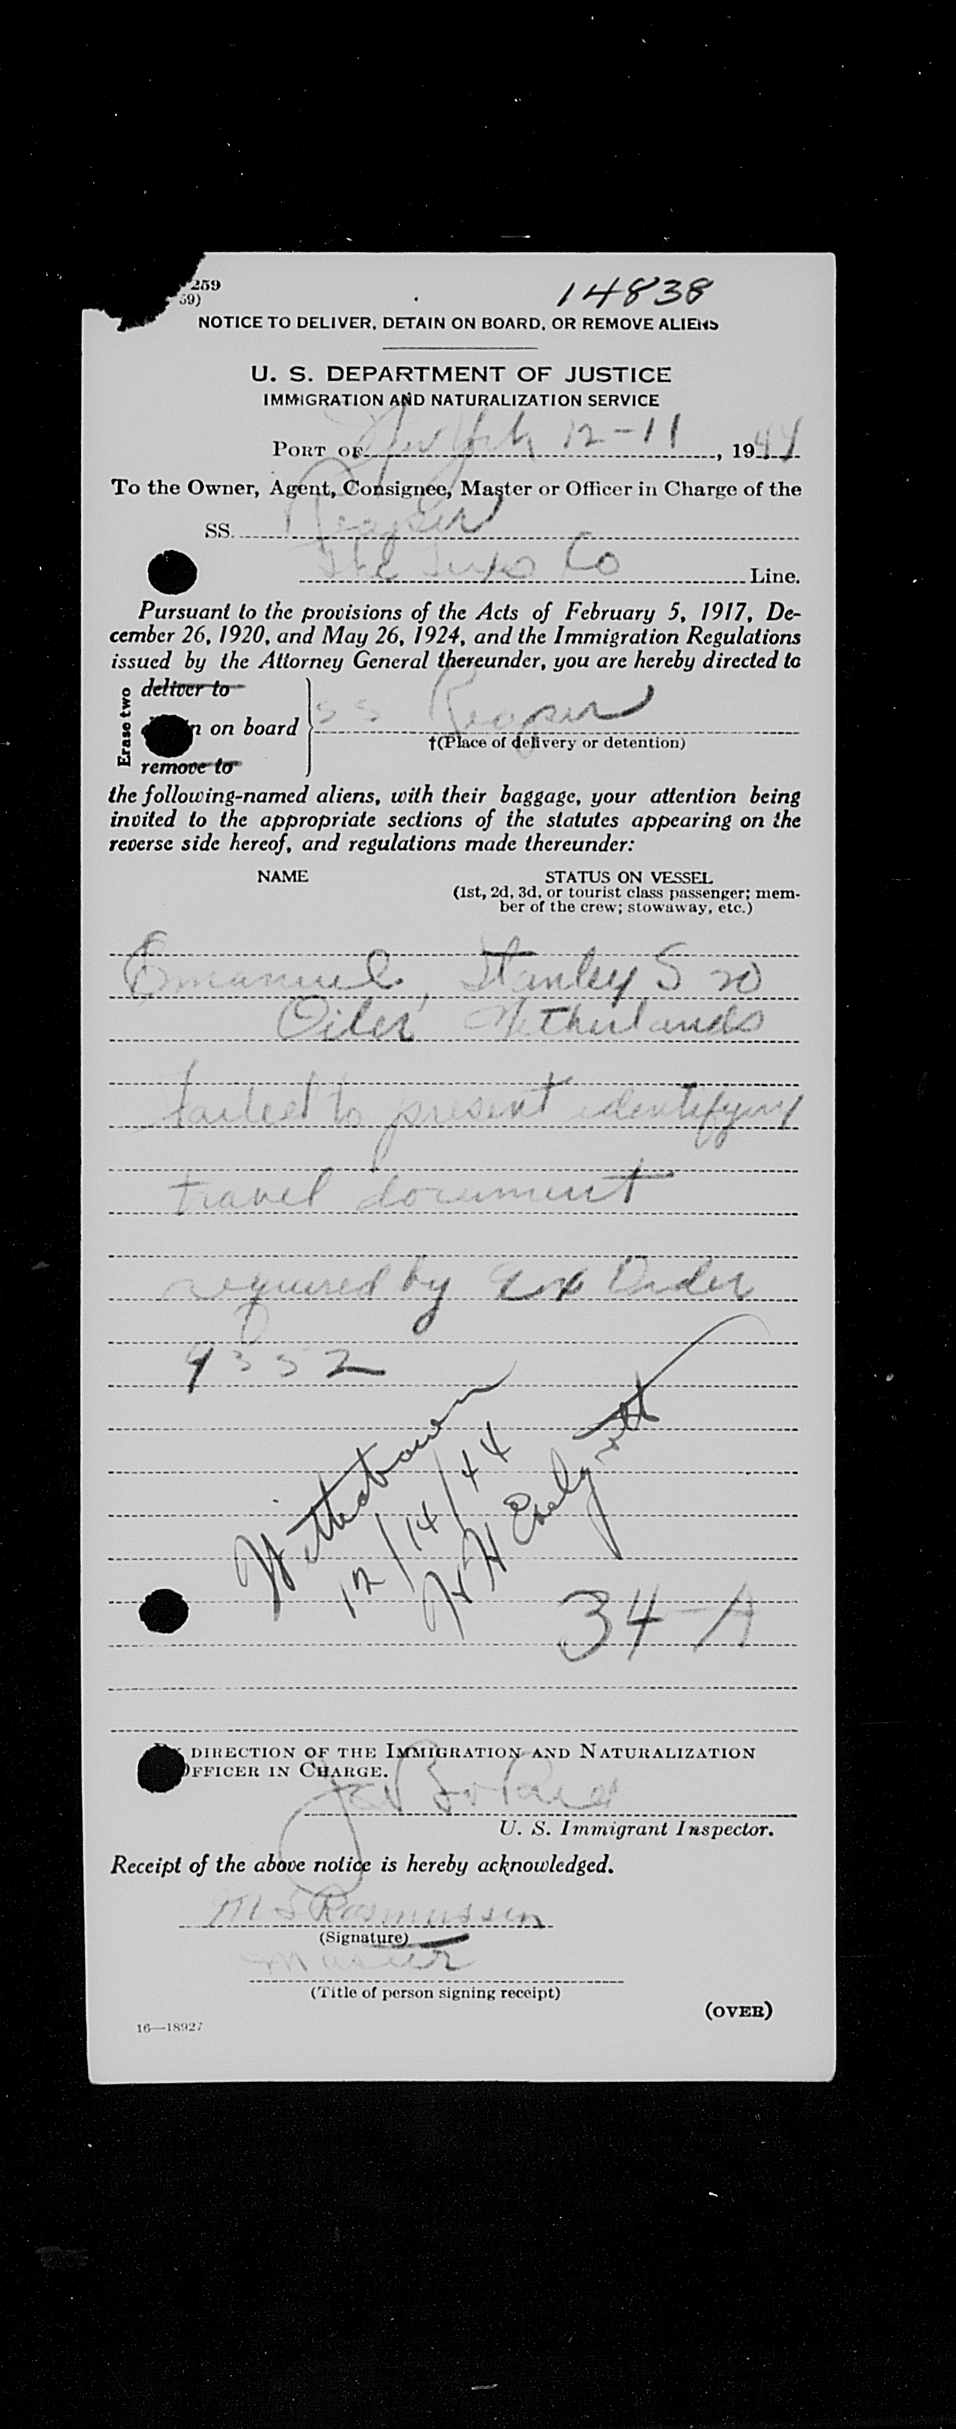 259
39)
14838
NOTICE TO DELIVER, DETAIN ON BOARD, OR REMOVE ALIENS
U. S. DEPARTMENT OF JUSTICE
IMMIGRATION AND NATURALIZATION SERVICE
PORT OF New York 12-11, 1944
To the Owner, Agent, Consignee, Master or Officer in Charge of the
SS. Reaper
The Co Line.
Pursuant to the provisions of the Acts of February 5, 1917, De-
cember 26, 1920, and May 26, 1924, and the Immigration Regulations
issued by the Attorney General thereunder, you are hereby directed to
Erase two
deliver to
n on board
remove to
SS Reaper
†(Place of delivery or detention)
the following-named aliens, with their baggage, your attention being
invited to the appropriate sections of the statutes appearing on the
reverse side hereof, and regulations made thereunder:
NAME STATUS ON VESSEL
(1st, 2d, 3d, or tourist class passenger; mem-
ber of the crew; stowaway, etc.)
Emanuel, Stanley S 20
Oiler Netherlands
failed to present identifying
travel document
required by Ex Order
9352
Withdrawn
12/14/44
34-A
DIRECTION OF THE IMMIGRATION AND NATURALIZATION
OFFICER IN CHARGE.
U. S. Immigrant Inspector.
Receipt of the above notice is hereby acknowledged.
M S Rasmussen
(Signature)
Master
(Title of person signing receipt)
(OVER)
16—18927